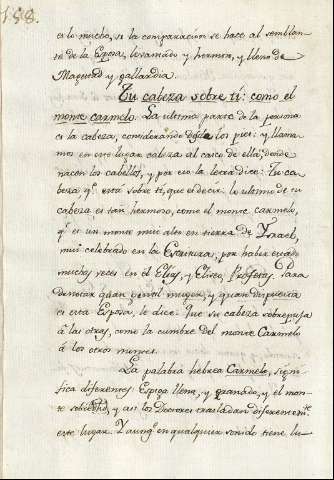 158.
es lo mucho, si la comparacion se hace al semblan-
te de la Esposa, levantado y hermoso, y lleno de
Magestad y gallardia.
Tu cabeza sobre ti: como el
monte carmelo. La ultima parte de la persona
es la cabeza, considerando desde los pies: y llama-
mos en este lugar cabeza al casco de ella, donde
nacen los cabellos, y por eso la letra dice: Tu ca-
beza qe. está sobre ti, que es decir: lo ultimo de tu
cabeza es tan hermoso, como el monte carmelo,
qe. es un monte muy alto en tierra de Ysrael,
muy celebrado en la Escritura, por haber estado
muchas veces en él Elias, y Eliseo, Profetas. Para
denotar quan gentil muger, y quan dispuesta
es esta Esposa, le dice: que su cabeza sobrepuja
á las otras, como la cumbre del monte Carmelo
á los otros montes.
La palabra hebrea Carmelo, signi-
fica diferentes: Espiga llena, y granada, y el mon-
te sobredho, y asi los Doctores trasladan diferentemte.
este lugar. Y aunqe. en qualquier sonido tiene bu-